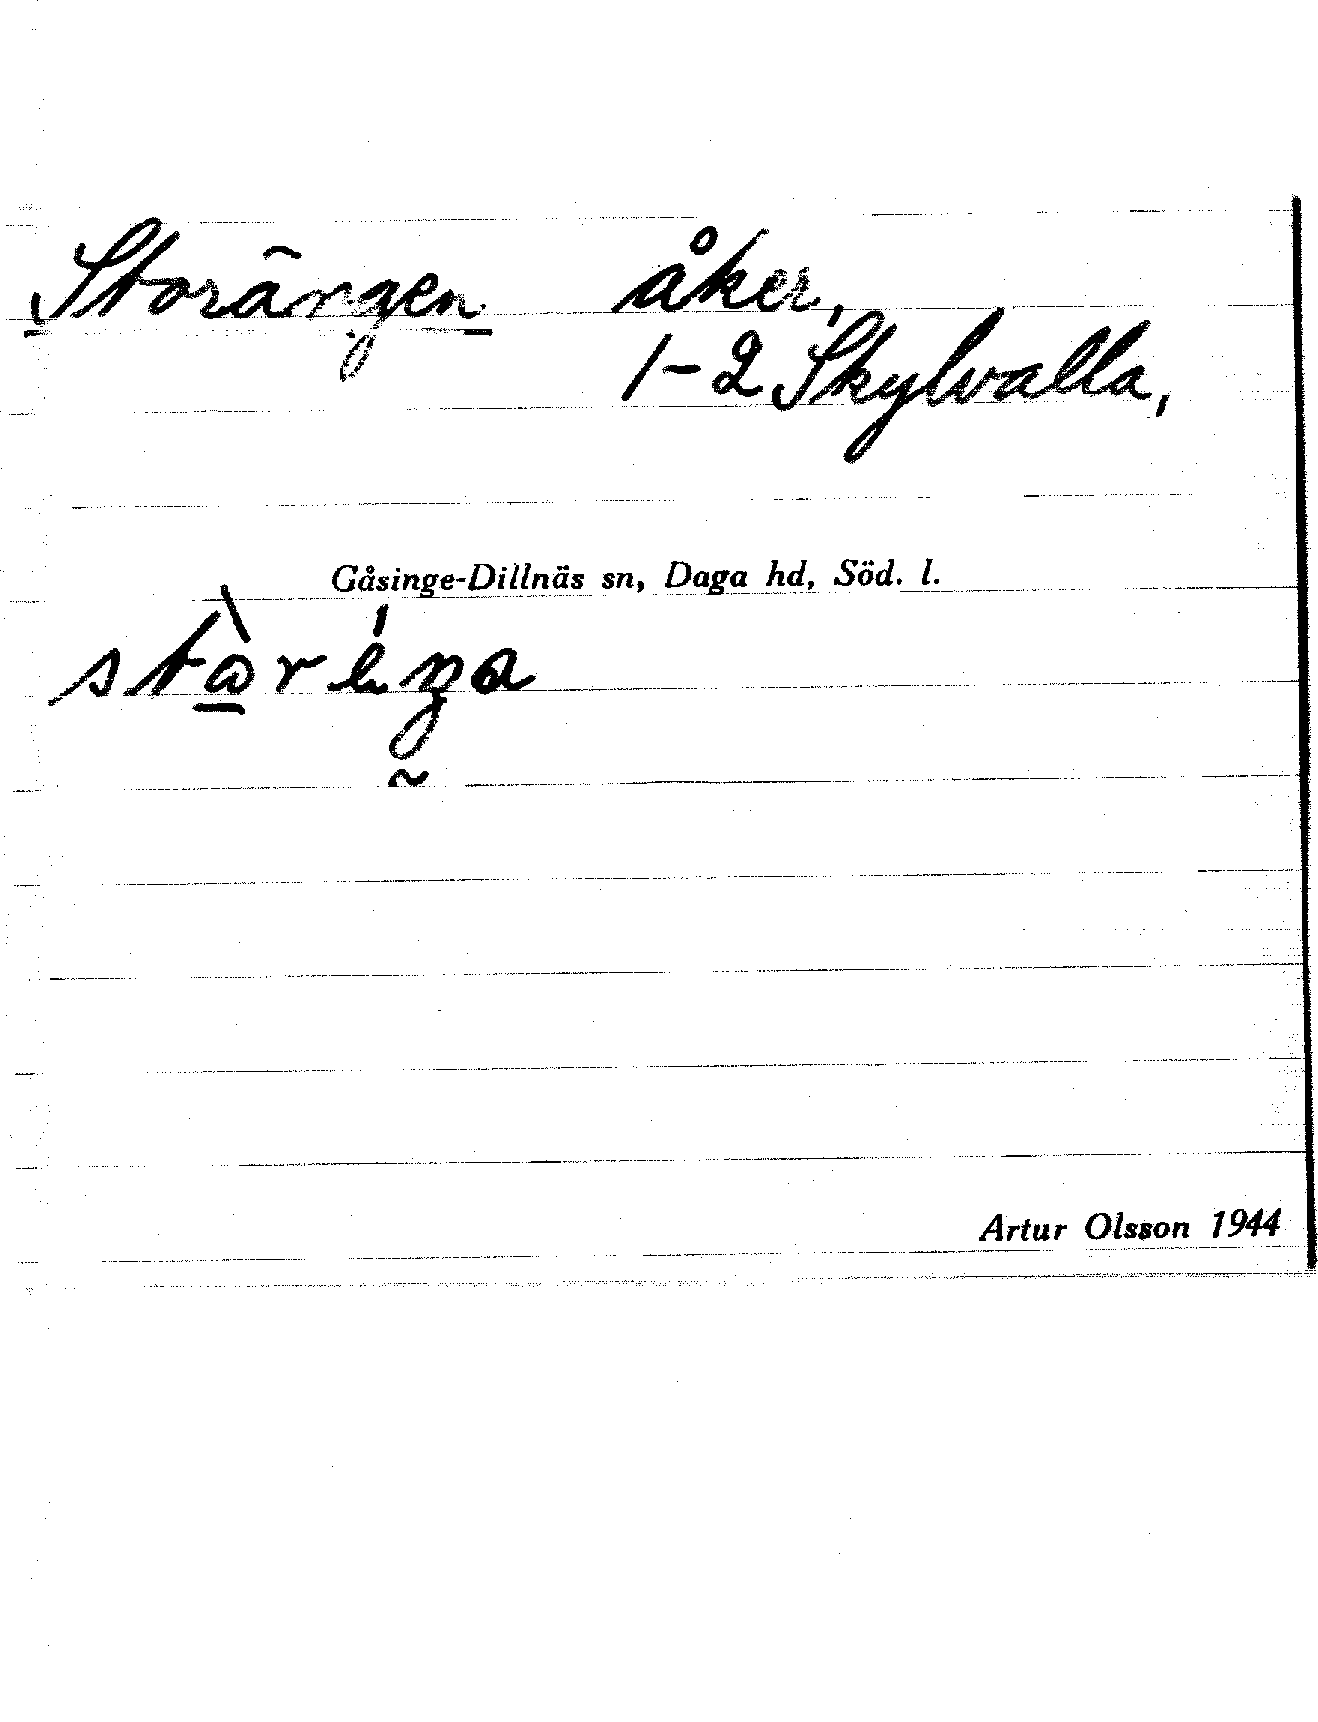 Storängen åker,
1-2 Skylvalla,
Gåsinge-Dillnäs sn, Daga hd, Söd. l.
Artur Olsson 1944